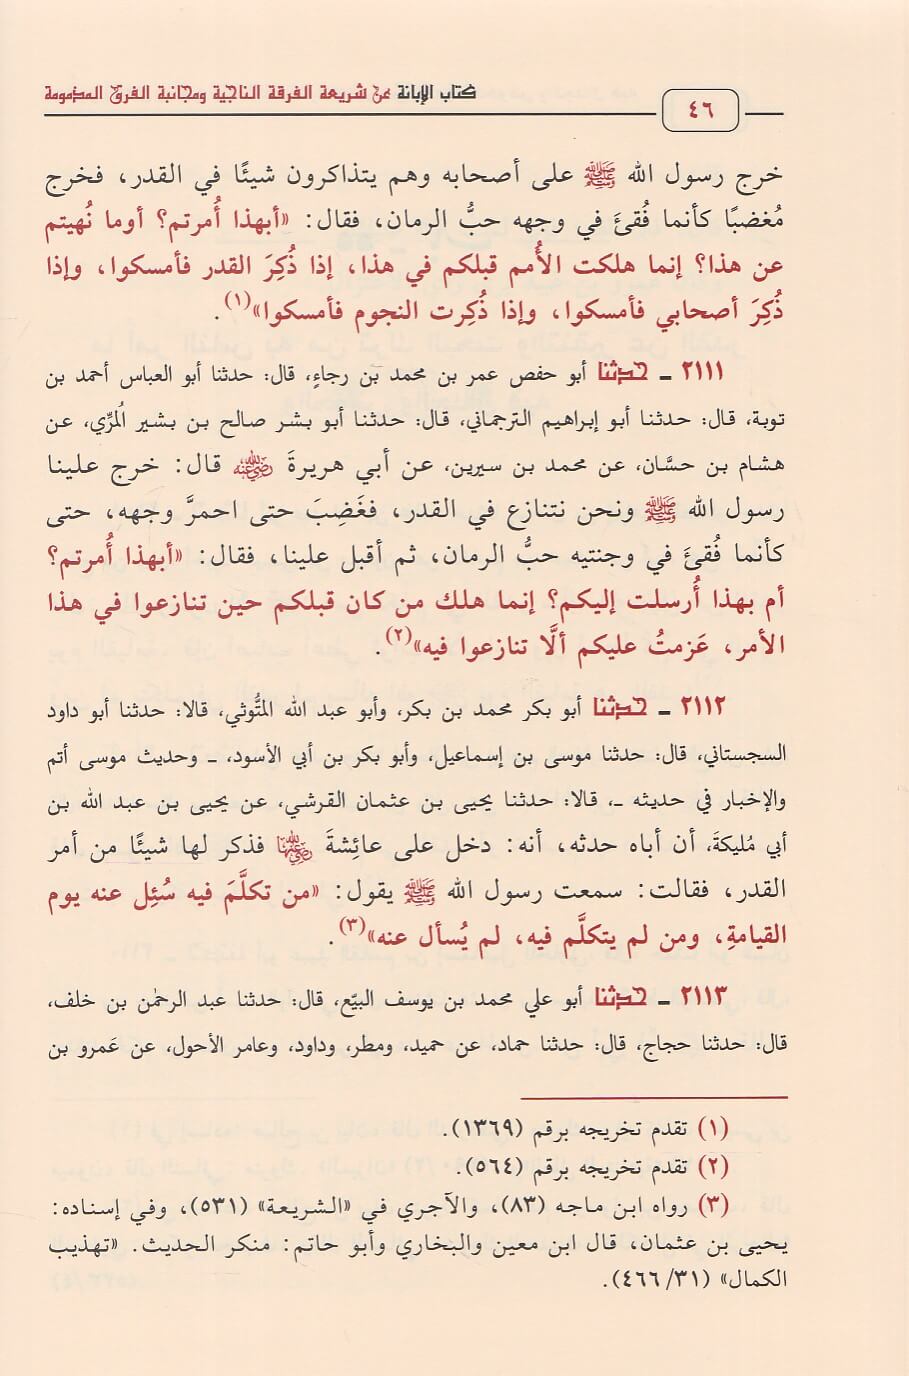 كتاب الإبانة عن شريعة الفرقة الناجية ومجانبة الفرق المذمومة
٤٦
خرج رسول الله ﷺ على أصحابه وهم يتذاكرون شيئًا في القدر، فخرج
مُغضبًا كأنما فُقئَ في وجهه حبُّ الرمان، فقال: «أبهذا أُمرتم؟ أوما نُهيتم
عن هذا؟ إنما هلكت الأُمم قبلكم في هذا، إذا ذُكِرَ القدر فأمسكوا، وإذا
ذُكِرَ أصحابي فأمسكوا، وإذا ذُكِرت النجوم فأمسكوا»(١).
٢١١١ ـ حدثنا أبو حفص عمر بن محمد بن رجاءٍ، قال: حدثنا أبو العباس أحمد بن
توبة، قال: حدثنا أبو إبراهيم الترجماني، قال: حدثنا أبو بشر صالح بن بشير المُرِّي، عن
هشام بن حسَّان، عن محمد بن سيرين، عن أبي هريرةَ رضي الله عنه قال: خرج علينا
رسول الله ﷺ ونحن نتنازع في القدر، فغَضِبَ حتى احمرَّ وجهه، حتى
كأنما فُقئَ في وجنتيه حبُّ الرمان، ثم أقبل علينا، فقال: «أبهذا أُمرتم؟
أم بهذا أُرسلت إليكم؟ إنما هلك من كان قبلكم حين تنازعوا في هذا
الأمر، عَزمتُ عليكم ألَّا تنازعوا فيه»(٢).
٢١١٢ ـ حدثنا أبو بكر محمد بن بكر، وأبو عبد الله المتُّوثي، قالا: حدثنا أبو داود
السجستاني، قال: حدثنا موسى بن إسماعيل، وأبو بكر بن أبي الأسود، ـ وحديث موسى أتم
والإخبار في حديثه ـ، قالا: حدثنا يحيى بن عثمان القرشي، عن يحيى بن عبد الله بن
أبي مُليكةَ، أن أباه حدثه، أنه: دخل على عائِشةَ رضي الله عنها فذكر لها شيئًا من أمر
القدر، فقالت: سمعت رسول الله ﷺ يقول: «من تكلَّمَ فيه سُئِل عنه يوم
القيامةِ، ومن لم يتكلَّم فيه، لم يُسأل عنه»(٣).
٢١١٣ ـ حدثنا أبو علي محمد بن يوسف البيِّع، قال: حدثنا عبد الرحمٰن بن خلف،
قال: حدثنا حجاج، قال: حدثنا حماد، عن حميد، ومطر، وداود، وعامر الأحول، عن عَمرو بن
(١) تقدم تخريجه برقم (١٣٦٩).
(٢) تقدم تخريجه برقم (٥٦٤).
(٣) رواه ابن ماجه (٨٣)، والآجري في «الشريعة» (٥٣١)، وفي إسناده:
يحيى بن عثمان، قال ابن معين والبخاري وأبو حاتم: منكر الحديث. «تهذيب
الكمال» (٣١/ ٤٦٦).